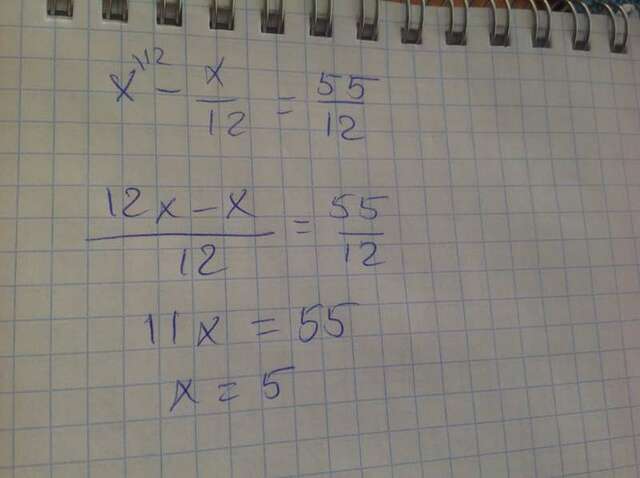 x\12 - x/12 = 55/12
(12x - x)/12 = 55/12
11x = 55
x = 5